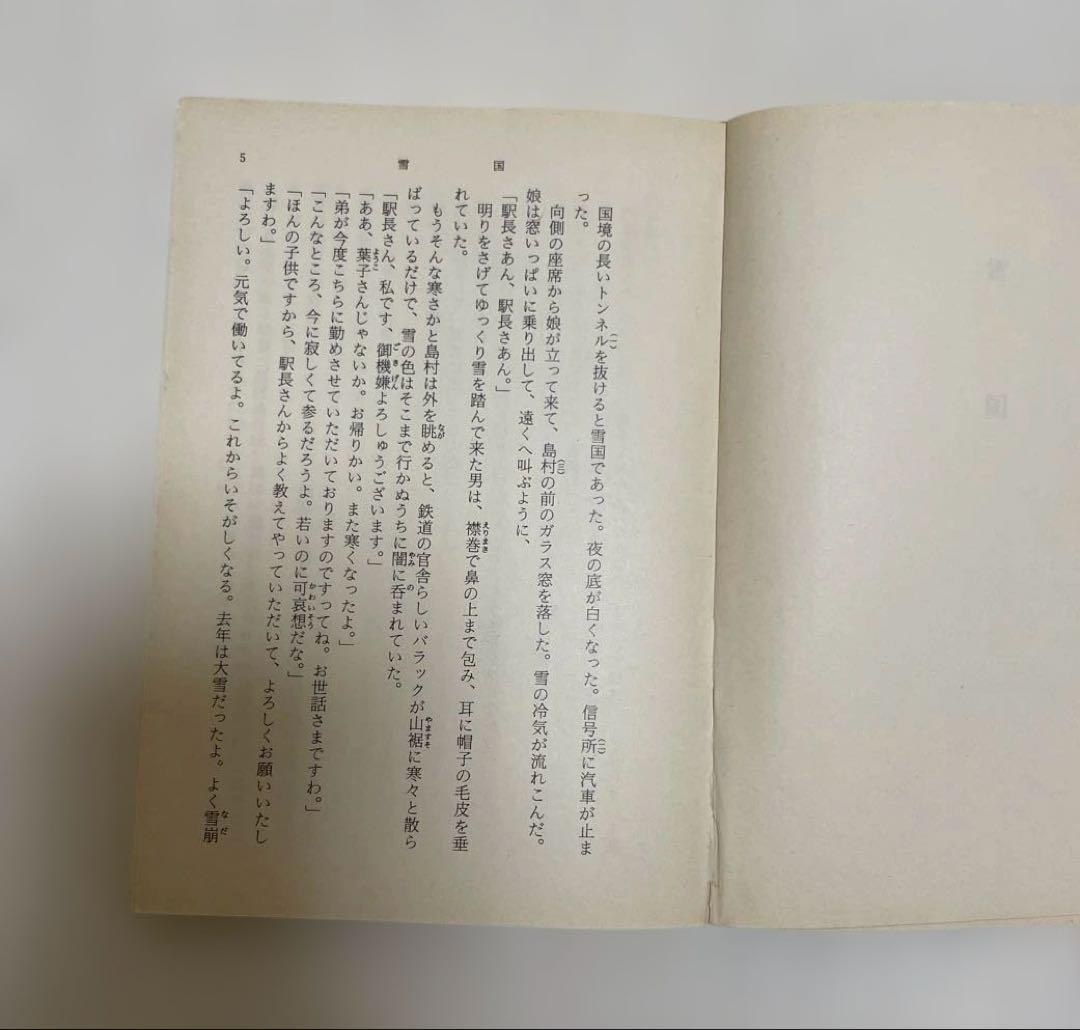 雪国
5
国境の長いトンネル(一)を抜けると雪国であった。夜の底が白くなった。信号所(二)に汽車が止ま
った。
向側の座席から娘が立って来て、島村(三)の前のガラス窓を落した。雪の冷気が流れこんだ。
娘は窓いっぱいに乗り出して、遠くへ叫ぶように、
「駅長さあん、駅長さあん。」
明りをさげてゆっくり雪を踏んで来た男は、襟巻で鼻の上まで包み、耳に帽子の毛皮を垂
れていた。
もうそんな寒さかと島村は外を眺めると、鉄道の官舎らしいバラックが山裾に寒々と散ら
ばっているだけで、雪の色はそこまで行かぬうちに闇に呑まれていた。
「駅長さん、私です、御機嫌よろしゅうございます。」
「ああ、葉子さんじゃないか。お帰りかい。また寒くなったよ。」
「弟が今度こちらに勤めさせていただいておりますのですってね。お世話さまですわ。」
「こんなところ、今に寂しくて参るだろうよ。若いのに可哀想だな。」
「ほんの子供ですから、駅長さんからよく教えてやっていただいて、よろしくお願いいたし
ますわ。」
「よろしい。元気で働いてるよ。これからいそがしくなる。去年は大雪だったよ。よく雪崩